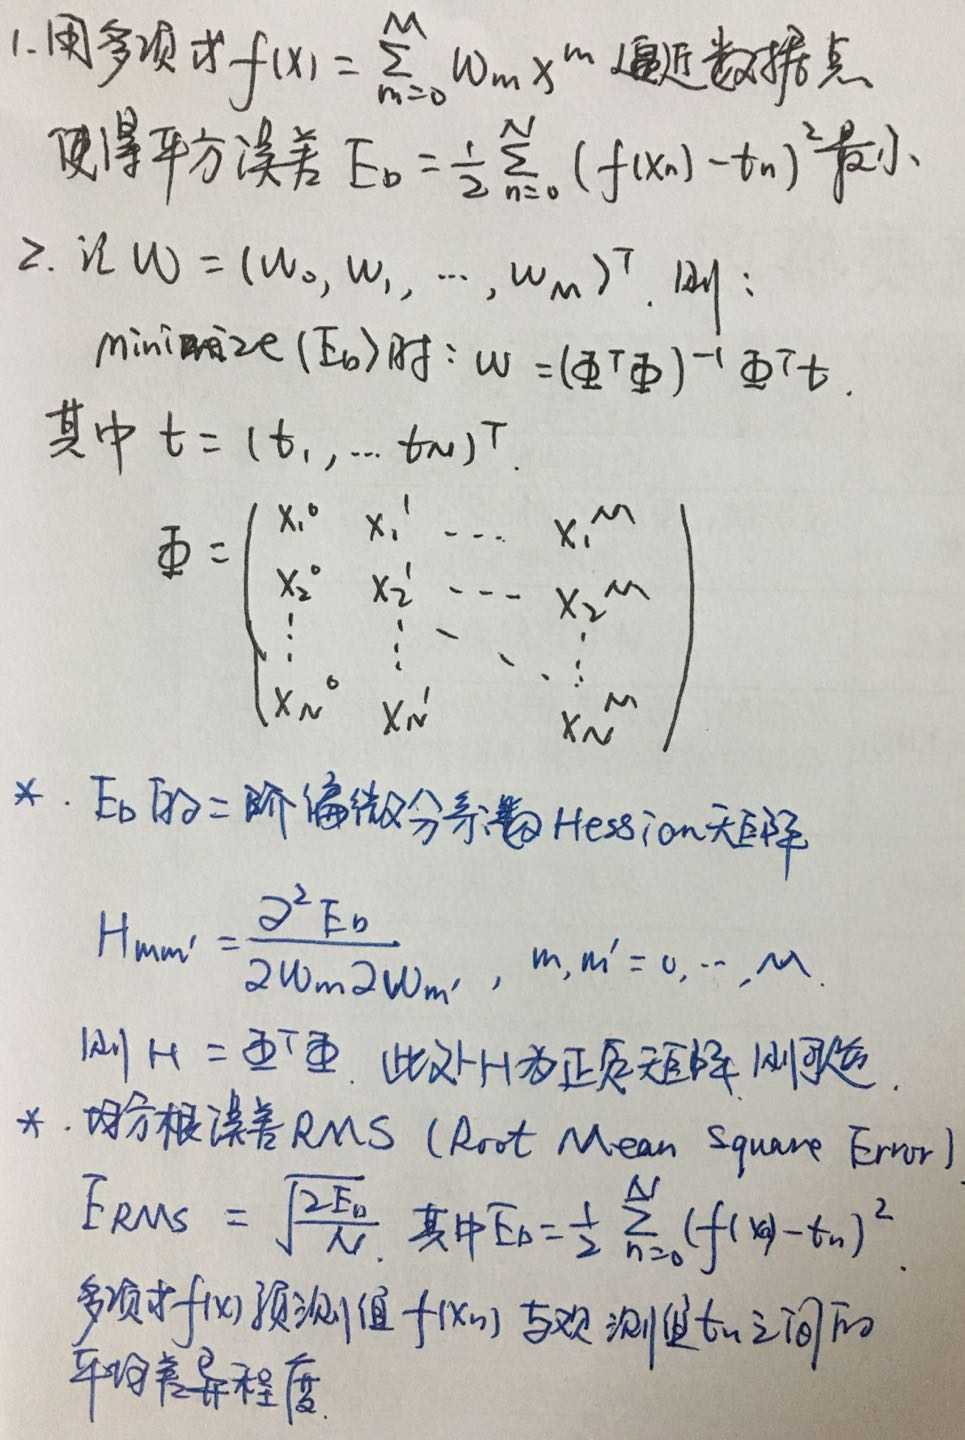 1. 用多项式 f(x) = ∑_{m=0}^{M} w_m x^m 逼近数据点
使得平方误差 E_D = 1/2 ∑_{n=0}^{N} (f(x_n) - t_n)^2 最小
2. 记 W = (w_0, w_1, ..., w_M)^T. 则:
minimize (E_D) 时: w = (Φ^T Φ)^{-1} Φ^T t.
其中 t = (t_1, ... t_N)^T.
Φ = ( x_1^0 x_1^1 ... x_1^M
x_2^0 x_2^1 ... x_2^M
⋮ ⋮ ⋱ ⋮
x_N^0 x_N^1 x_N^M )
* . E_D 的二阶偏微分系数 Hession 矩阵
H_{mm'} = ∂^2 E_D / ∂w_m ∂w_{m'} , m, m' = 0, ..., M.
则 H = Φ^T Φ. 此处 H 为正定矩阵, 则可逆.
* . 均方根误差 RMS (Root Mean Square Error)
E_{RMS} = √(2E_D / N). 其中 E_D = 1/2 ∑_{n=0}^{N} (f(x_n) - t_n)^2.
多项式 f(x) 预测值 f(x_n) 与观测值 t_n 之间的
平均差异程度.